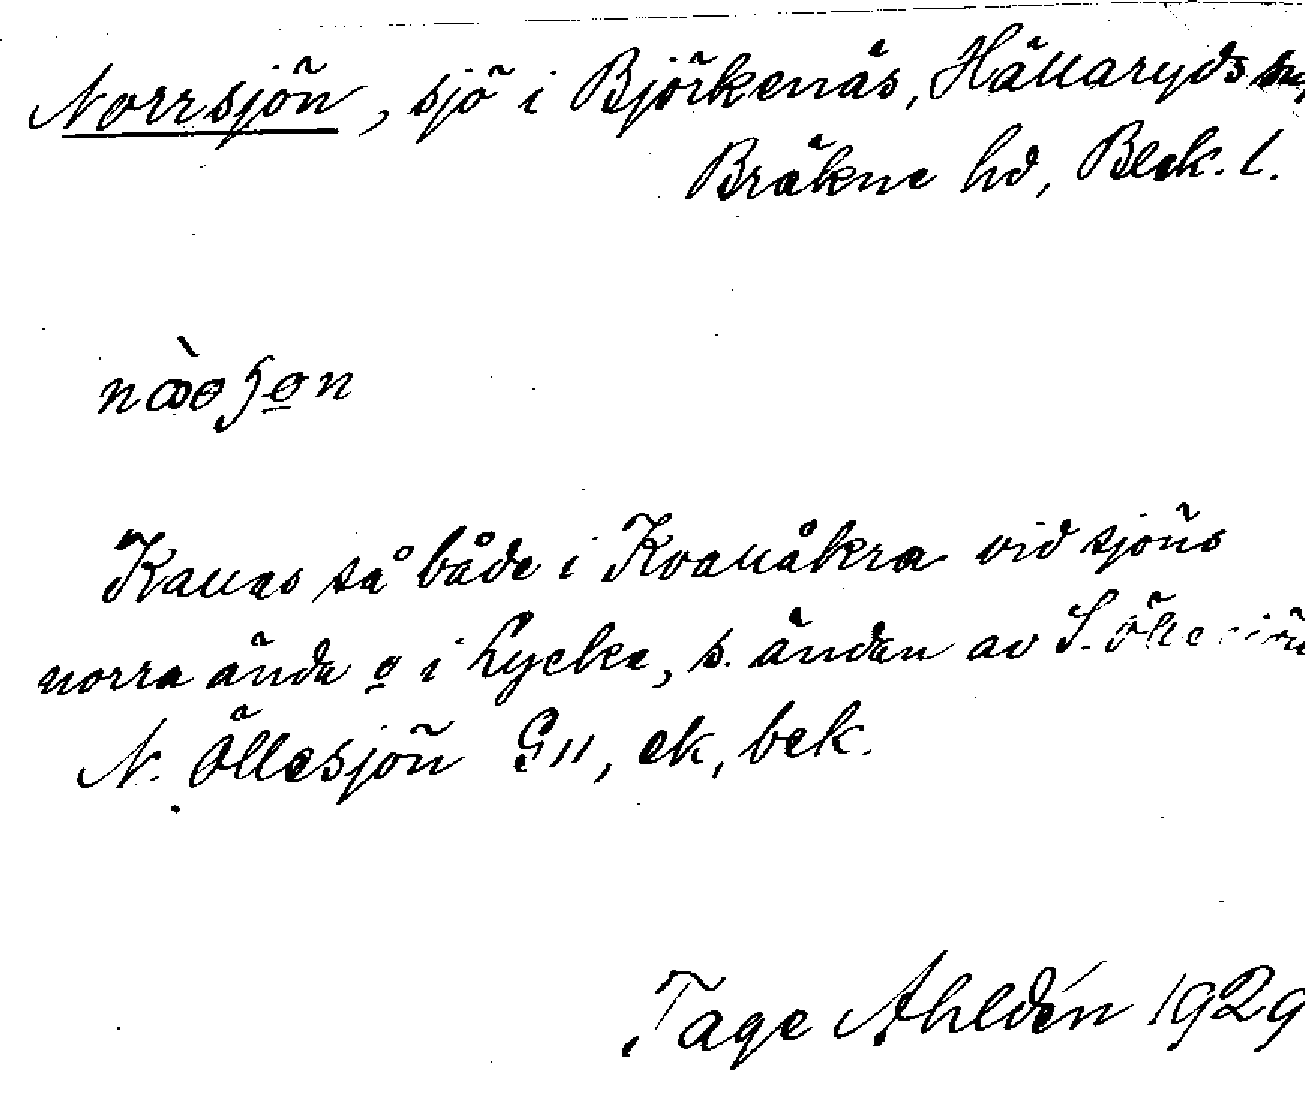 Norrsjön, sjö i Björkenäs, Hällaryds sn,
Bräkne hd, Blek. l.
Kallas så både i Kvallåkra vid sjöns
norra ända o i Lycke, s. ändan av S. Öllesjön
N. Öllesjön GII, ek, bek.
Tage Ahldén 1929